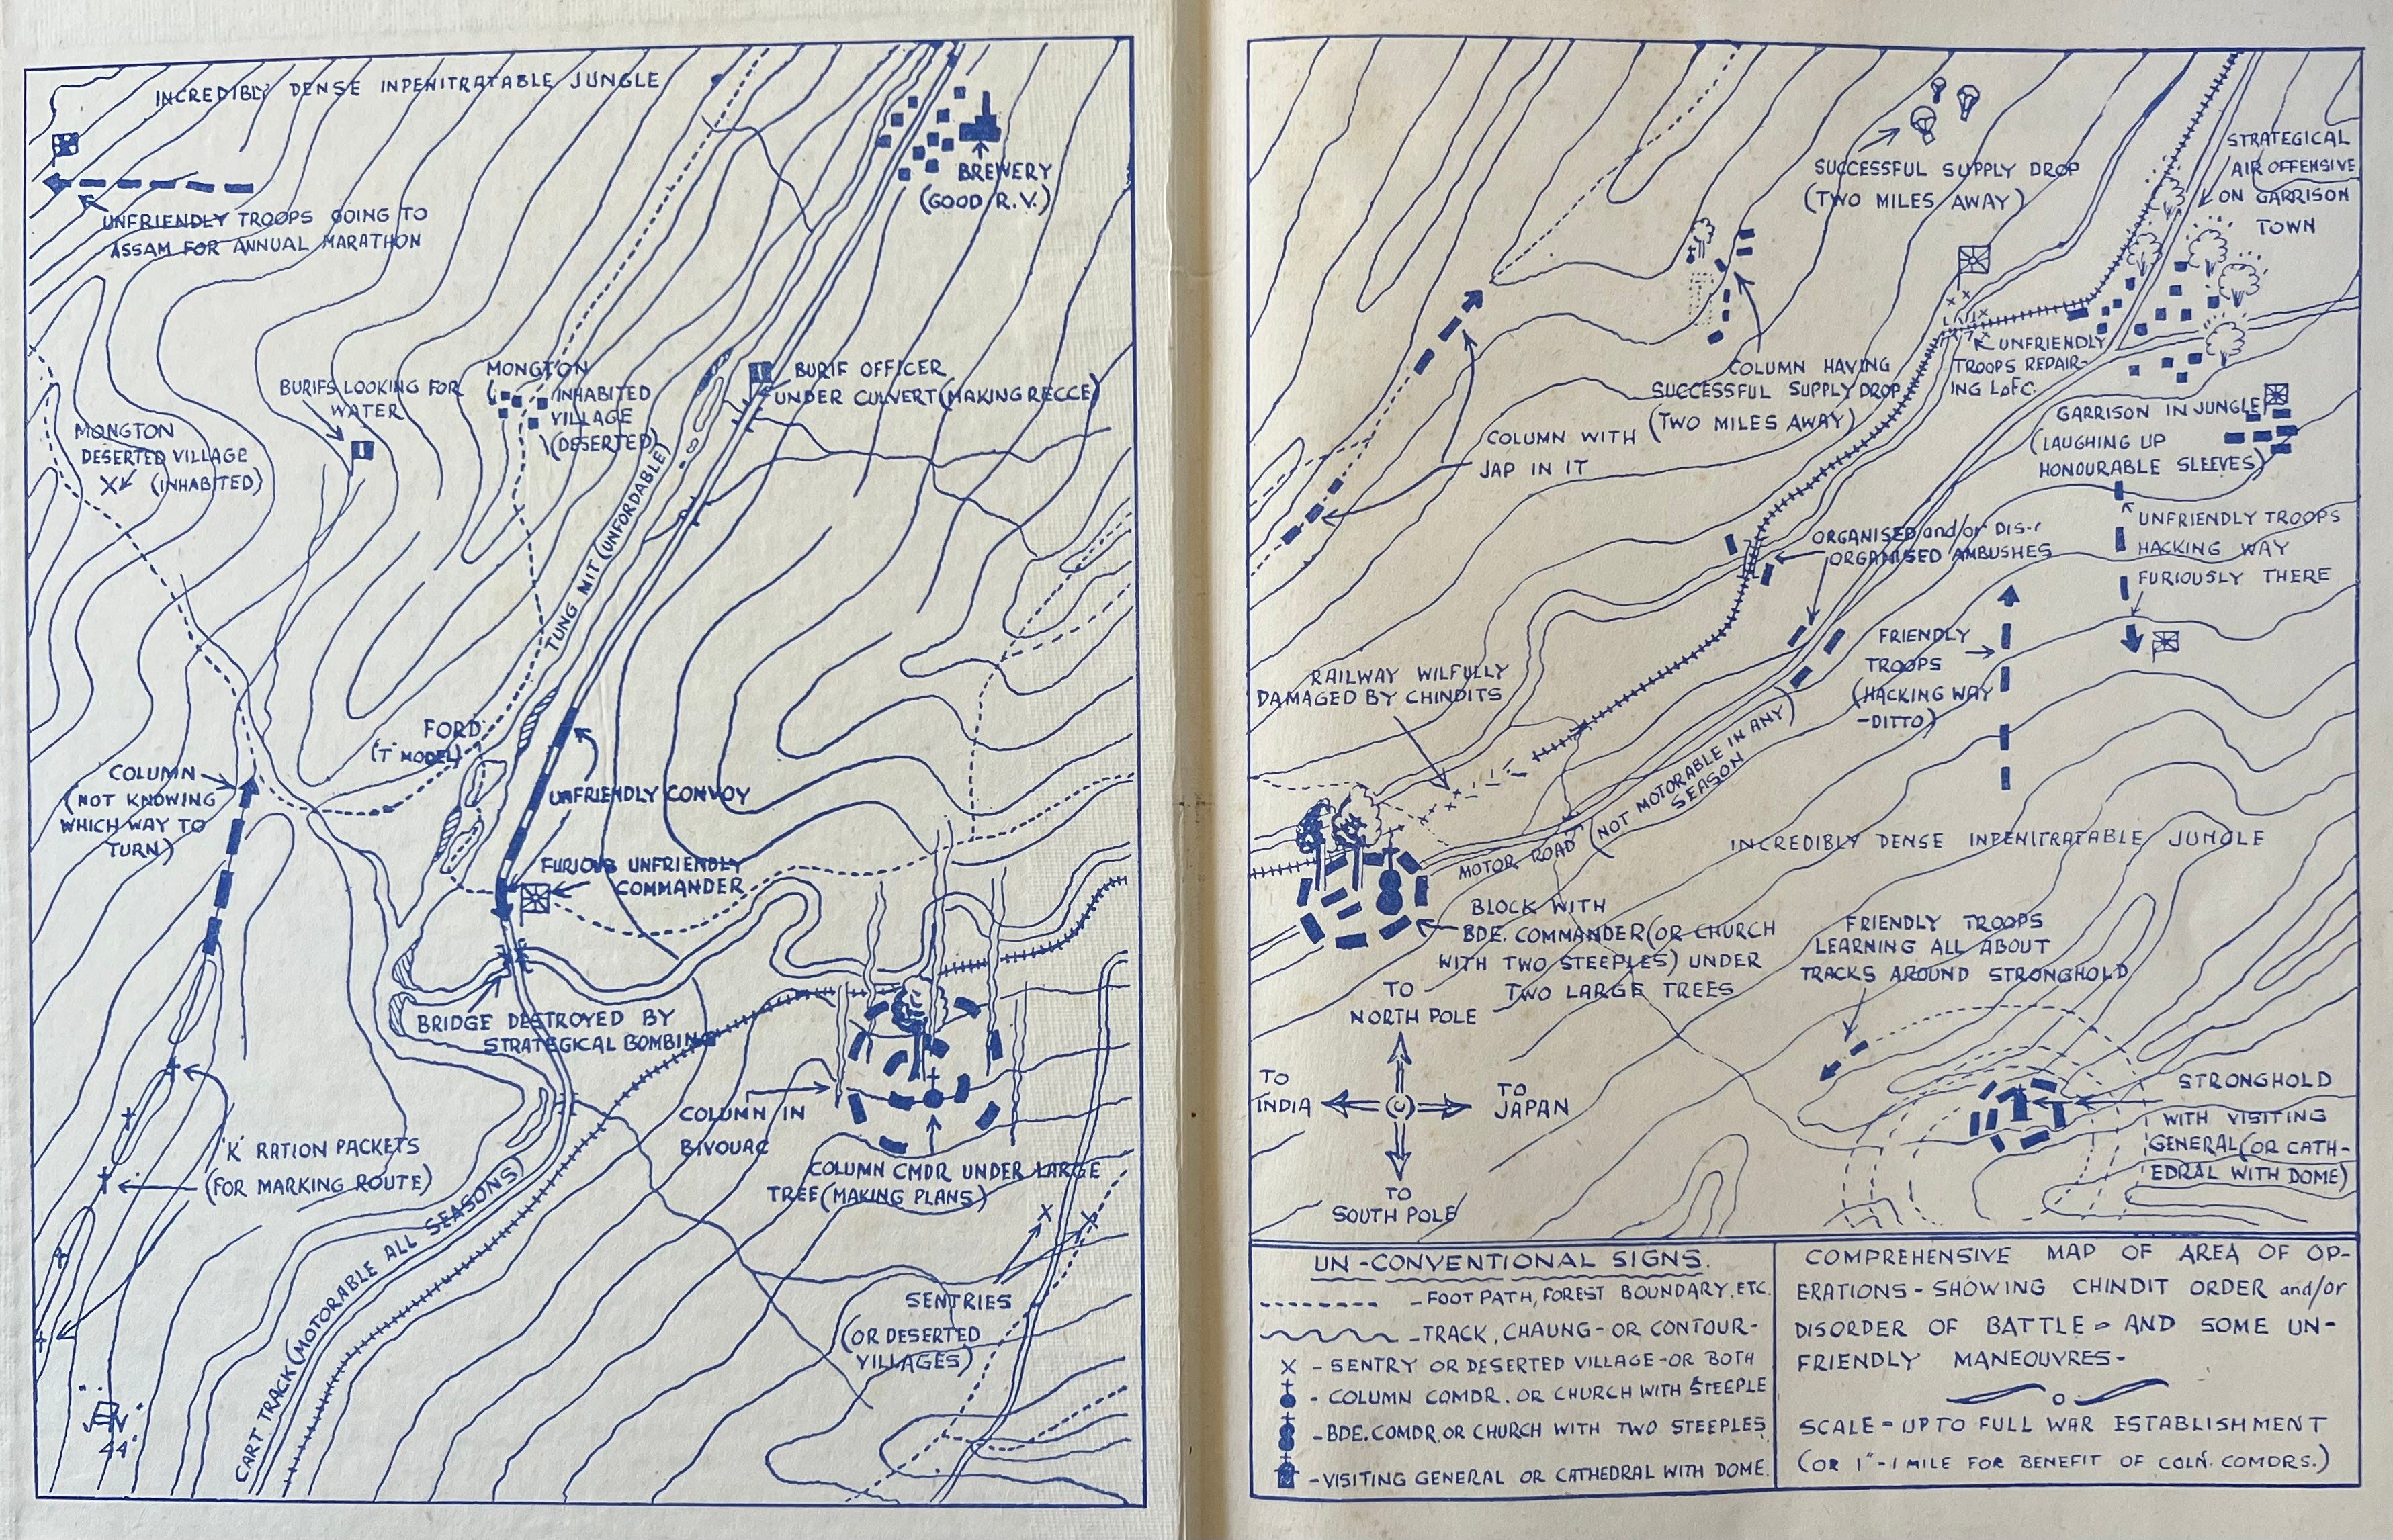 INCREDIBLY DENSE INPENITRATABLE JUNGLE
BREWERY
(GOOD R.V.)
UNFRIENDLY TROOPS GOING TO
ASSAM FOR ANNUAL MARATHON
BURIFS LOOKING FOR
WATER
MONGTON
INHABITED
VILLAGE
(DESERTED)
BURIF OFFICER
UNDER CULVERT (MAKING RECCE)
MONGTON
DESERTED VILLAGE
X (INHABITED)
TUNG MIT (UNFORDABLE)
FORD
("T" MODEL)
COLUMN
(NOT KNOWING
WHICH WAY TO
TURN)
UNFRIENDLY CONVOY
FURIOUS UNFRIENDLY
COMMANDER
BRIDGE DESTROYED BY
STRATEGICAL BOMBING
COLUMN IN
BIVOUAC
COLUMN CMDR UNDER LARGE
TREE (MAKING PLANS)
'K' RATION PACKETS
(FOR MARKING ROUTE)
CART TRACK (MOTORABLE ALL SEASONS)
SENTRIES
(OR DESERTED
VILLAGES)
44
SUCCESSFUL SUPPLY DROP
(TWO MILES AWAY)
STRATEGICAL
AIR OFFENSIVE
ON GARRISON
TOWN
COLUMN HAVING
SUCCESSFUL SUPPLY DROP
(TWO MILES AWAY)
UNFRIENDLY
TROOPS REPAIR-
ING LofC.
COLUMN WITH
JAP IN IT
GARRISON IN JUNGLE
(LAUGHING UP
HONOURABLE SLEEVES)
ORGANISED and/or DIS-
ORGANISED AMBUSHES
UNFRIENDLY TROOPS
HACKING WAY
FURIOUSLY THERE
FRIENDLY
TROOPS
(HACKING WAY
-DITTO)
RAILWAY WILFULLY
DAMAGED BY CHINDITS
MOTOR ROAD (NOT MOTORABLE IN ANY)
SEASON
INCREDIBLY DENSE INPENITRATABLE JUNGLE
BLOCK WITH
BDE. COMMANDER (OR CHURCH
WITH TWO STEEPLES) UNDER
TWO LARGE TREES
FRIENDLY TROOPS
LEARNING ALL ABOUT
TRACKS AROUND STRONGHOLD
TO
NORTH POLE
TO
INDIA
TO
JAPAN
TO
SOUTH POLE
STRONGHOLD
WITH VISITING
GENERAL (OR CATH-
EDRAL WITH DOME)
UN-CONVENTIONAL SIGNS.
-FOOT PATH, FOREST BOUNDARY, ETC.
-TRACK, CHAUNG- OR CONTOUR-
X - SENTRY OR DESERTED VILLAGE-OR BOTH
- COLUMN COMDR. OR CHURCH WITH STEEPLE
-BDE. COMDR. OR CHURCH WITH TWO STEEPLES
-VISITING GENERAL OR CATHEDRAL WITH DOME.
COMPREHENSIVE MAP OF AREA OF OP-
ERATIONS - SHOWING CHINDIT ORDER and/or
DISORDER OF BATTLE - AND SOME UN-
FRIENDLY MANEOUVRES-
SCALE - UP TO FULL WAR ESTABLISHMENT
(OR 1"-1 MILE FOR BENEFIT OF COLN. COMDRS.)